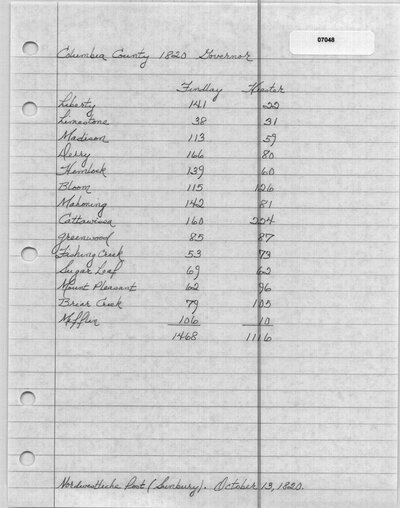 07048
Columbia County 1820 Governor
Findlay Hiester
Liberty 141 22
Limestone 38 31
Madison 113 59
Derry 166 80
Hemlock 139 60
Bloom 115 126
Mahoning 142 81
Cattawissa 160 224
Greenwood 85 87
Fishing Creek 53 73
Sugar Loaf 69 62
Mount Pleasant 62 96
Briar Creek 79 105
Mifflin 106 10
1468 1116
Nordwestliche Post (Sunbury). October 13, 1820.